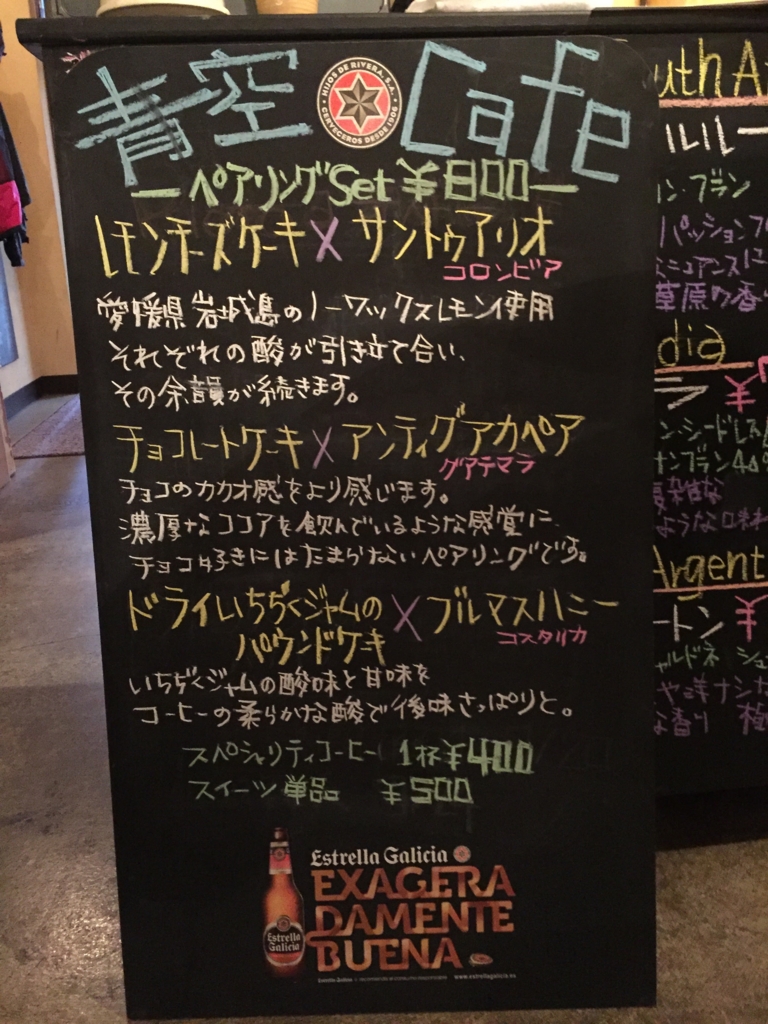 青空 Cafe
HIJOS DE RIVERA, S.A.
CERVECEROS DESDE 1906
ペアリングSet ¥800
レモンチーズケーキ×サントゥアリオ
コロンビア
愛媛県 岩城島のノーワックスレモン使用
それぞれの酸が引き立て合い、
その余韻が続きます。
チョコレートケーキ×アンティグアカペア
グアテマラ
チョコのカカオ感をより感じます。
濃厚なココアを飲んでいるような感覚に
チョコ好きにはたまらないペアリングです。
ドライいちぢくジャムの×ブルマスハニー
パウンドケーキ
コスタリカ
いちぢくジャムの酸味と甘味を
コーヒーの柔らかな酸で後味さっぱりと。
スペシャリティコーヒー 1杯¥400
スイーツ単品 ¥500
Estrella Galicia
EXAGERA
DAMENTE
BUENA
Estrella
Galicia
www.estrellagalicia.es
uth A
ルルー
ン・ブラン
パッション
ニュアンスに
草原の香り
dia
ラ ¥
ン・シードレス
ナンブラン
複雑な
ような
Argent
ートン ¥
ャルドネ
や洋ナシ
な香り